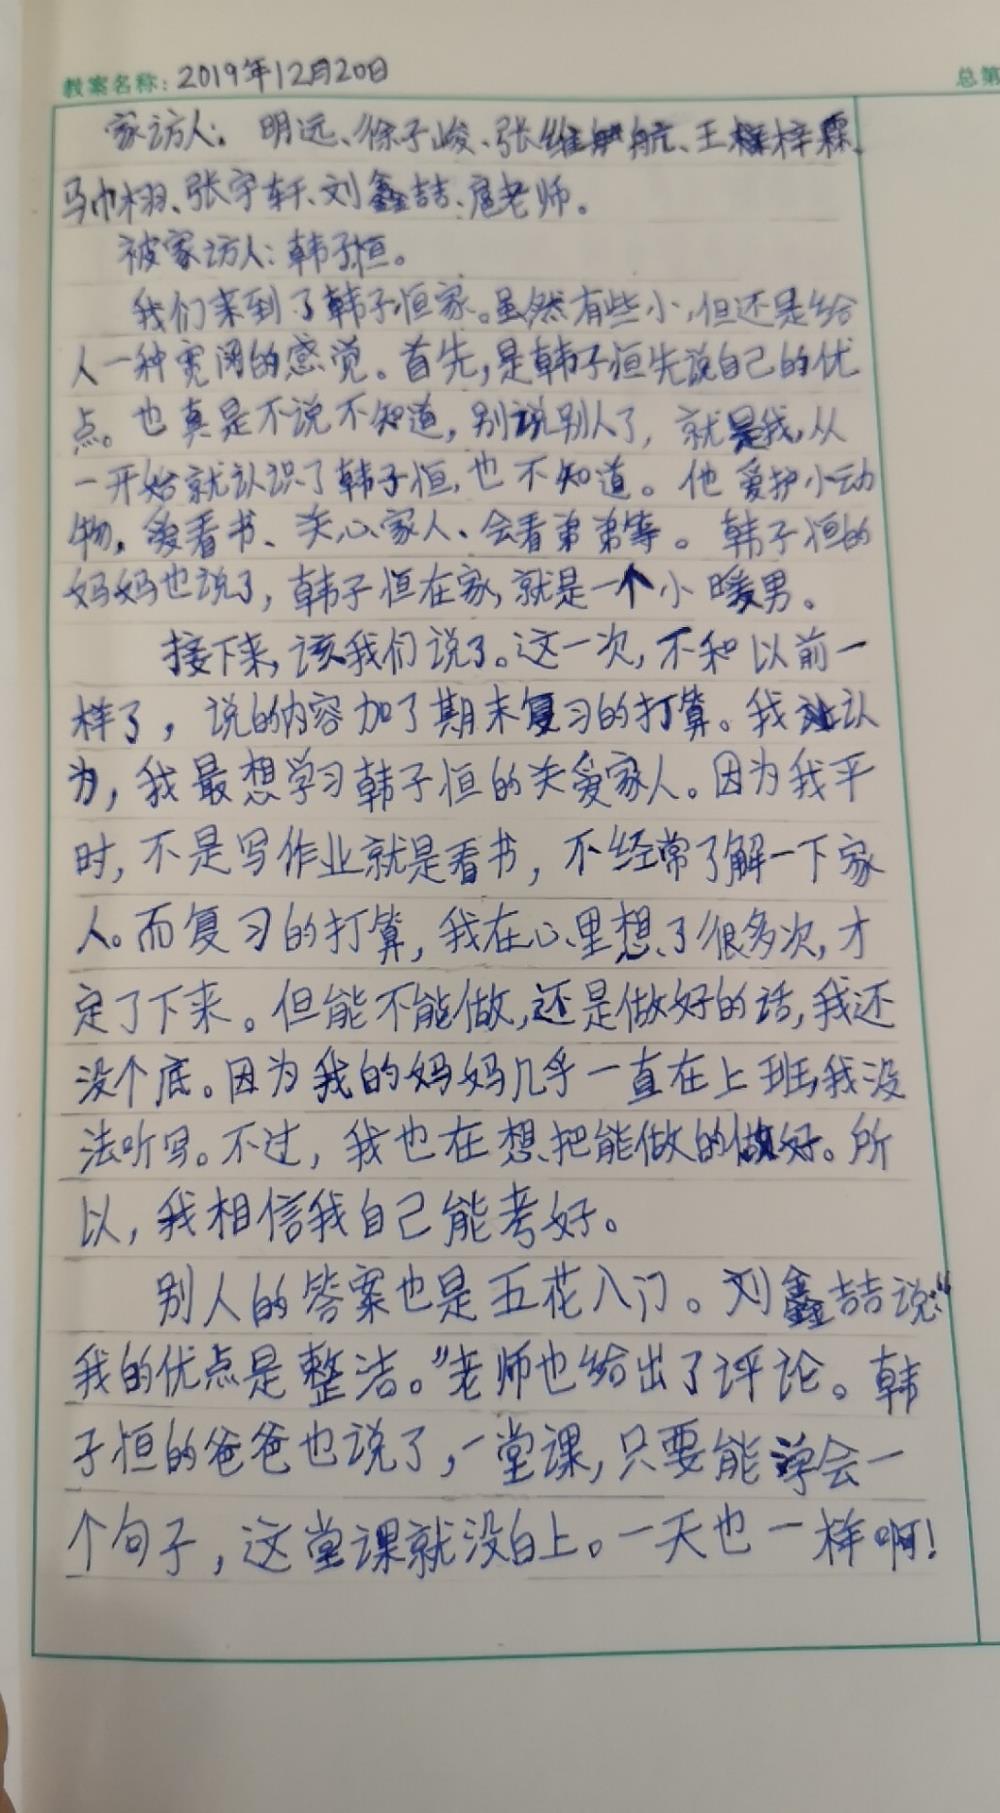 教案名称: 2019年12月20日
总第
家访人：明远、徐子峻、张维航、王梓霖、
马巾栩、张宇轩、刘鑫喆、扈老师。
被家访人：韩子恒。
我们来到了韩子恒家。虽然有些小，但还是给
人一种宽阔的感觉。首先，是韩子恒先说自己的优
点。也真是不说不知道，别说别人了，就是我，从
一开始就认识了韩子恒，也不知道。他爱护小动
物，爱看书、关心家人、会看弟弟等。韩子恒的
妈妈也说了，韩子恒在家，就是一个小暖男。
接下来，该我们说了。这一次，不和以前一
样了，说的内容加了期末复习的打算。我认
为，我最想学习韩子恒的关爱家人。因为我平
时，不是写作业就是看书，不经常了解一下家
人。而复习的打算，我在心里想了很多次，才
定了下来。但能不能做，还是做好的话，我还
没个底。因为我的妈妈几乎一直在上班，我没
法听写。不过，我也在想把能做的做好。所
以，我相信我自己能考好。
别人的答案也是五花入门。刘鑫喆说：“
我的优点是整洁。”老师也给出了评论。韩
子恒的爸爸也说了，一堂课，只要能学会一
个句子，这堂课就没白上。一天也一样啊！